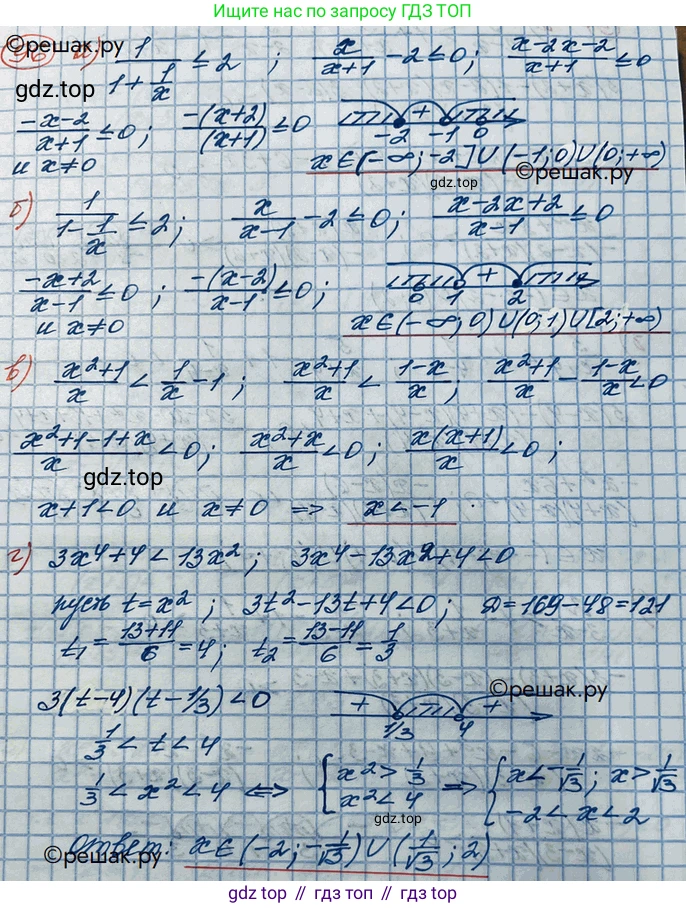 Ищите нас по запросу ГДЗ ТОП
©reшак.ру ©reшак.ру
а) 1/(1+1/x) ≤ 2 ; x/(x+1) - 2 ≤ 0; (x-2x-2)/(x+1) ≤ 0
gdz.top
(-x-2)/(x+1) ≤ 0; -(x+2)/(x+1) ≤ 0 + -2 -1 0
и x≠0 x∈(-∞;-2]∪(-1;0)∪(0;+∞)
gdz.top ©reшак.ру
б) 1/(1-1/x) ≤ 2; x/(x-1) - 2 ≤ 0; (x-2x+2)/(x-1) ≤ 0
(-x+2)/(x-1) ≤ 0 ; -(x-2)/(x-1) ≤ 0; + 0 1 2
и x≠0 x∈(-∞;0)∪(0;1)∪[2;+∞)
в) (x²+1)/x < 1/x - 1 ; (x²+1)/x < (1-x)/x ; (x²+1)/x - (1-x)/x < 0
(x²+1-1+x)/x < 0; (x²+x)/x < 0; x(x+1)/x < 0 ;
gdz.top
x+1<0 и x≠0 => x<-1
г) 3x⁴+4<13x² ; 3x⁴-13x²+4<0
пусть t=x² ; 3t²-13t+4<0 ; D=169-48=121
t₁=(13+11)/6=4; t₂=(13-11)/6=1/3
3(t-4)(t-1/3)<0 + + 1/3 4
©reшак.ру
1/3<t<4
1/3<x²<4 <=> {x²>1/3 x²<4 => {x<-1/√3; x>1/√3 -2<x<2
gdz.top
Ответ: x∈(-2;-1/√3)∪(1/√3;2)
©reшак.ру
gdz top // гдз топ // gdz.top